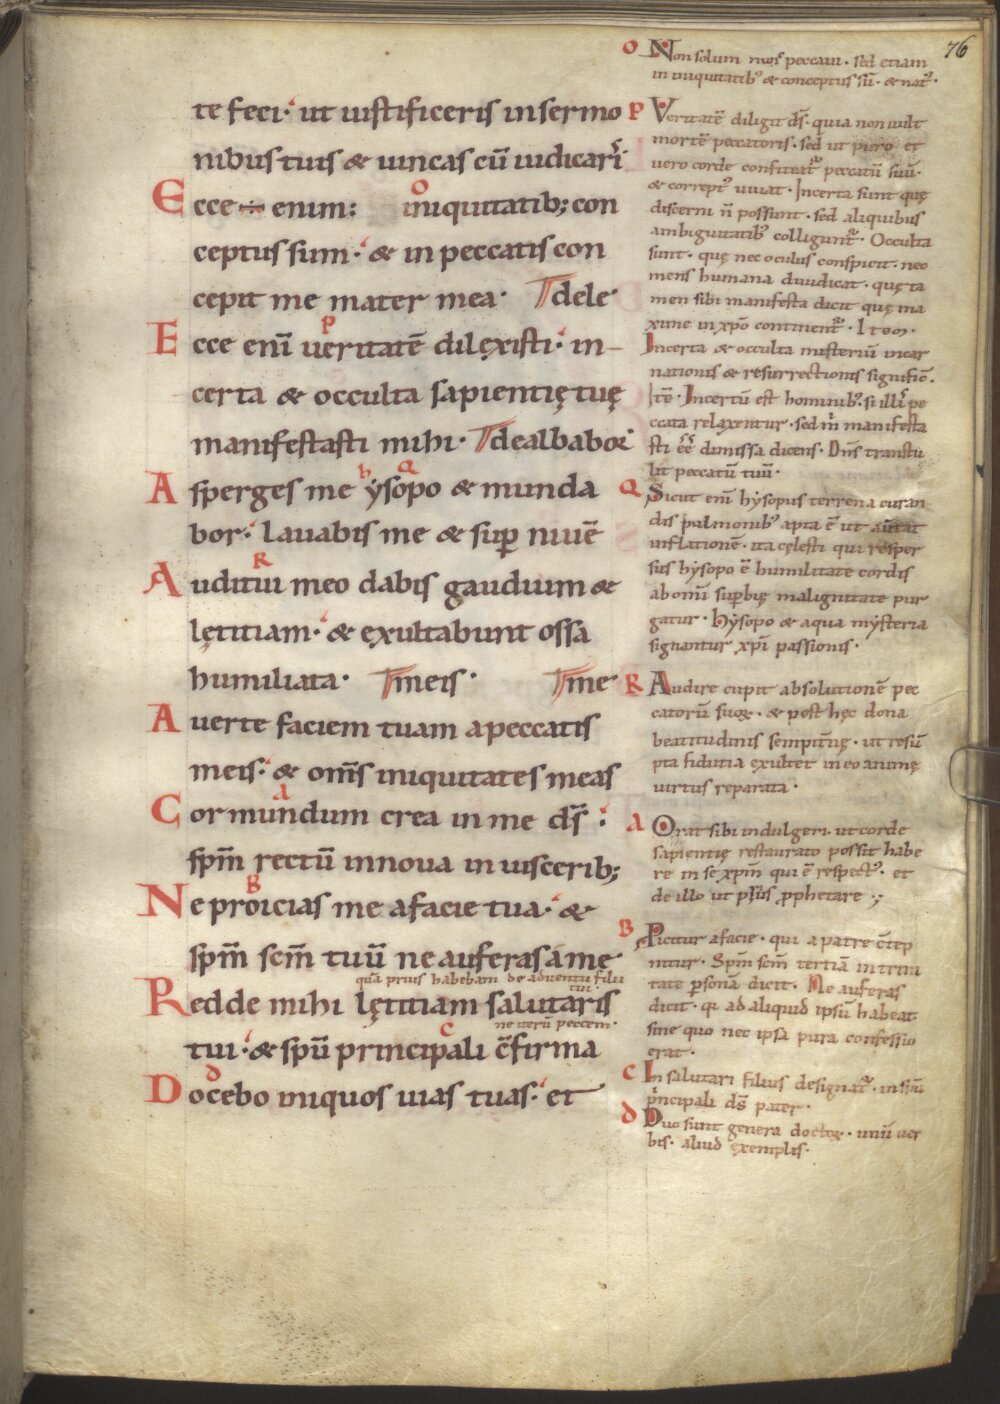 76
te feci· ut iustificeris in sermo
nibus tuis & uincas cū iudicari᷑
Ecce enim: iniquitatib; con
ceptus sum· & in peccatis con
cepit me mater mea· dele·
Ecce eni᷑ ueritatē dilęxisti· in-
certa & occulta sapientię tuę
manifestasti mihi· dealbabor
Asperges me hysopo & munda
bor· lauabis me & sup niuē
Auditui meo dabis gaudium &
lętitiam· & exultabunt ossa
humiliata· meis· me·
Auerte faciem tuam a peccatis
meis· & oms iniquitates meas
Cor mundum crea in me ds̄:
spm̄ rectū innoua in uiscerib;
Ne proicias me a facie tua· &
spm̄ scm̄ tuū ne auferas a me
quā prius habebam de aduentu filii
tui·
Redde mihi lętitiam salutaris
ne iterū peccem·
tui· & spū principali cfirma
Docebo iniquos uias tuas· et
O Non solum mor peccaui· sed etiam
in iniquitatib; & conceptus sū· & nat᷒·
P Veritatē diligit ds̄· quia non uult
mortē peccatoris· sed ut puro et
uero corde confiteat᷑ peccatū suū·
& corrept᷒ uiuat· Incerta sunt quę
discerni n̄ possunt· sed aliquibus
ambiguitatib; colligunt᷑· Occulta
sunt· quę nec oculus conspicit· nec
mens humana diiudicat· quę ta
men sibi manifesta dicit quę ma
xime in xp̄o continent᷑· Item·
Incerta & occulta misteriū incar
nationis & resurrectionis signific̄·
Itē· Incertū est hominib;· si illi᷑ pe
ccata relaxentur· sed m̄ manifesta
sti ee᷑ dimissa dicens· Dn̄s transtu
lit peccatū tuū·
Q Sicut eni᷑ hysopus terrena curan
dis pulmonib; apta ē ut auerat
inflationē· ita cęlesti qui resper
sus hysopo ē humilitate cordis
ab omi᷑ supbię malignitate pur
gatur· hysopo & aqua mysteria
signantur xp̄i passionis·
R Audire cupit absolutionē pec
catorū suoꝝ· & post hęc dona
beatitudinis sempit᷑nę· ut resū
pta fidutia exultet in eo animę
uirtus reparata·
A Orat sibi indulgeri· ut corde
sapientię restaurato possit habe
re in se xpm̄ qui ē respect᷒· et
de illo ut pl᷒ ꝓphetare·;
B Picitur a facie· qui a patre ctēp
nitur· Spm̄ scm̄ tertiā in trini
tate psonā dicit· Ne auferas
dicit· qi ad aliquid ipsū habeat
sine quo nec ipsa pura confessio
erat·
C In salutari filius designat᷑· in spū
principali ds̄ pater·
D Duo sunt genera doctoꝝ· unū uer
bis· aliud exemplis·